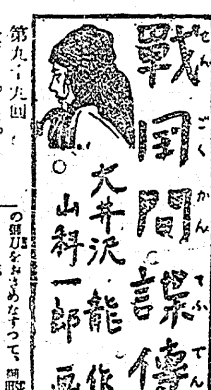 戰国間諜傳
せんごくかんてふでん
大井沢 龍 作
山科一郎 画
第九十九回
をおさめなすつて、